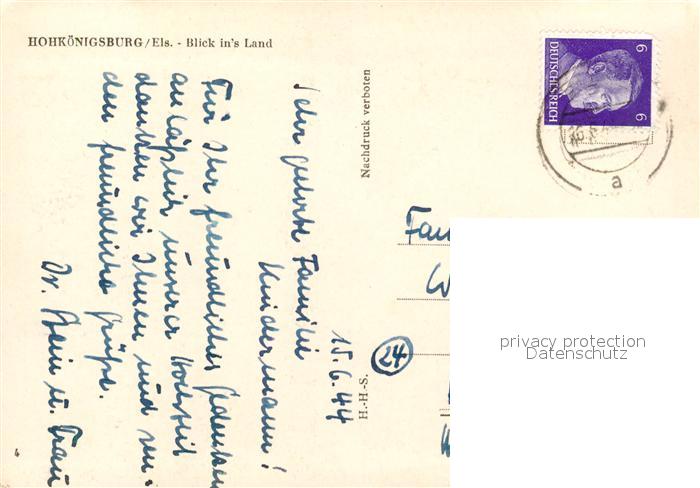 HOHKÖNIGSBURG/Els. - Blick in's Land
Nachdruck verboten
H.-H-S.
6
6
DEUTSCHES REICH
a
15.6.44
Sehr geehrte Familie
Kindermann!
Für Ihr freundliches Gedenken
anläßlich unserer Hochzeit
danken wir Ihnen und
den freundliche Grüße.
Dr. Hein u. Frau
Fam
W
24
privacy protection
Datenschutz